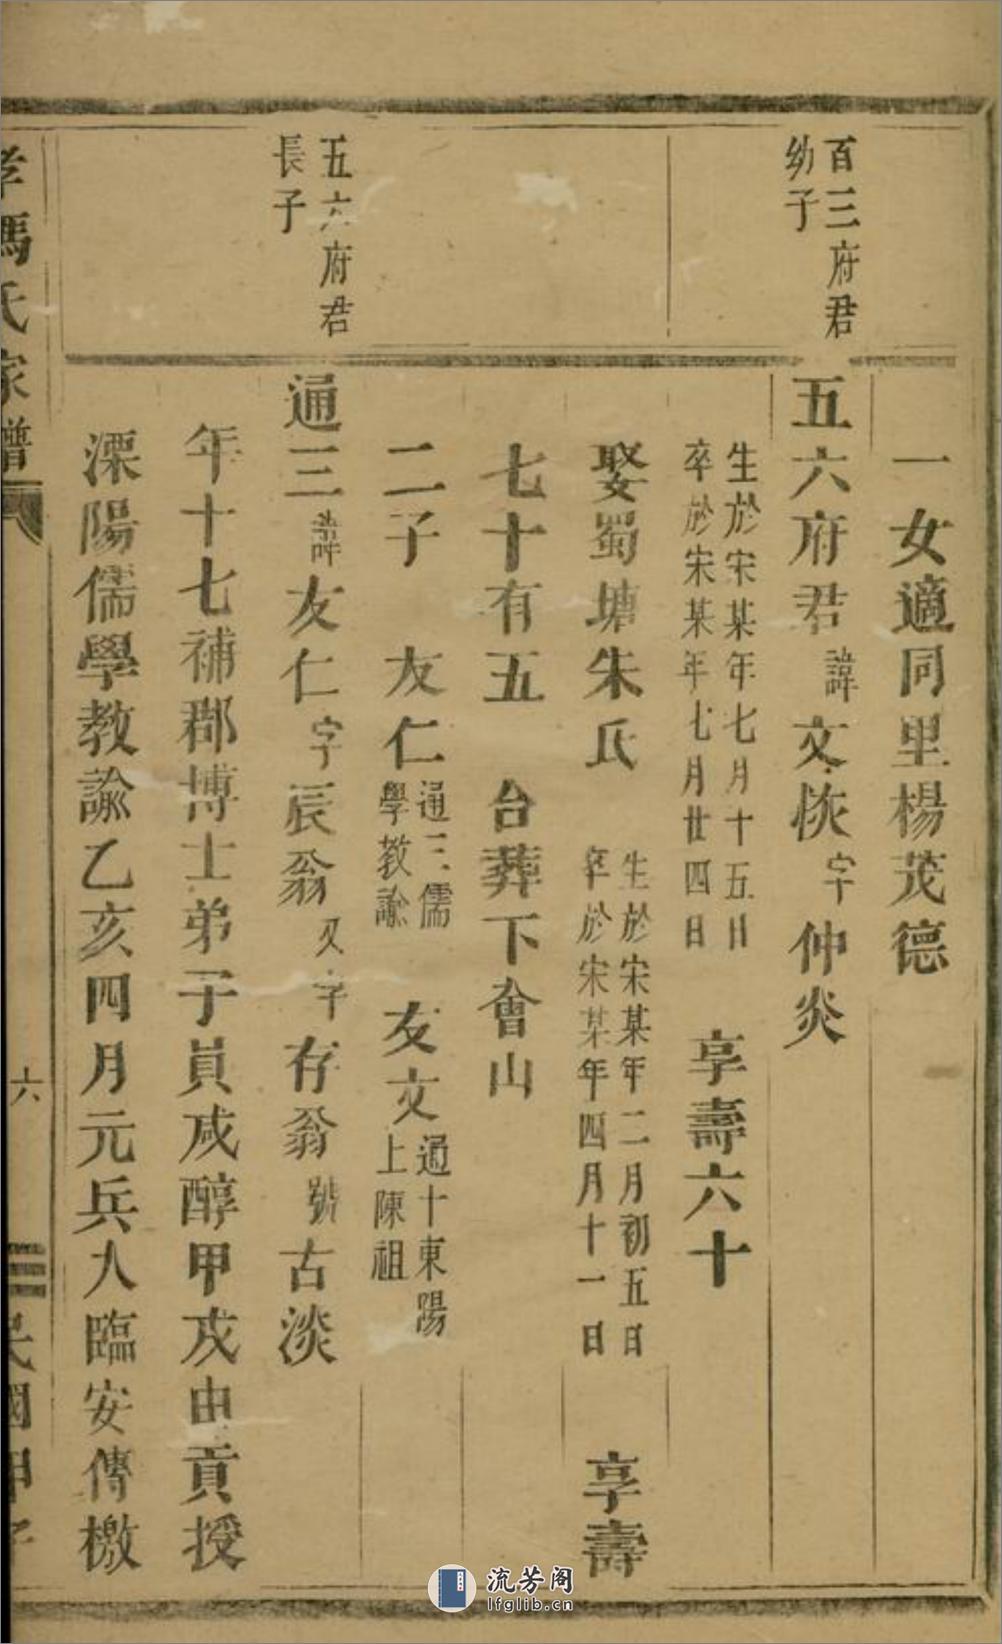 百三府君
幼子
五六府君
長子
一女適同里楊茂德
五六府君諱文恢字仲炎
生於宋某年七月十五日
卒於宋某年七月廿四日
享壽六十
娶蜀塘朱氏
生於宋某年二月初五日
卒於宋某年四月十一日
享壽
七十有五 合葬下會山
二子 友仁
通三儒
學教諭
友文
通十東陽
上陳祖
通三諱友仁字辰翁又字存翁號古淡
年十七補郡博士弟子員咸醇甲戌由貢授
溧陽儒學教諭乙亥四月元兵入臨安傳檄
馮氏家譜
六
民國甲子
流芳阁
lfglib.cn